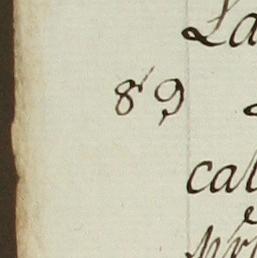 La
89
cal